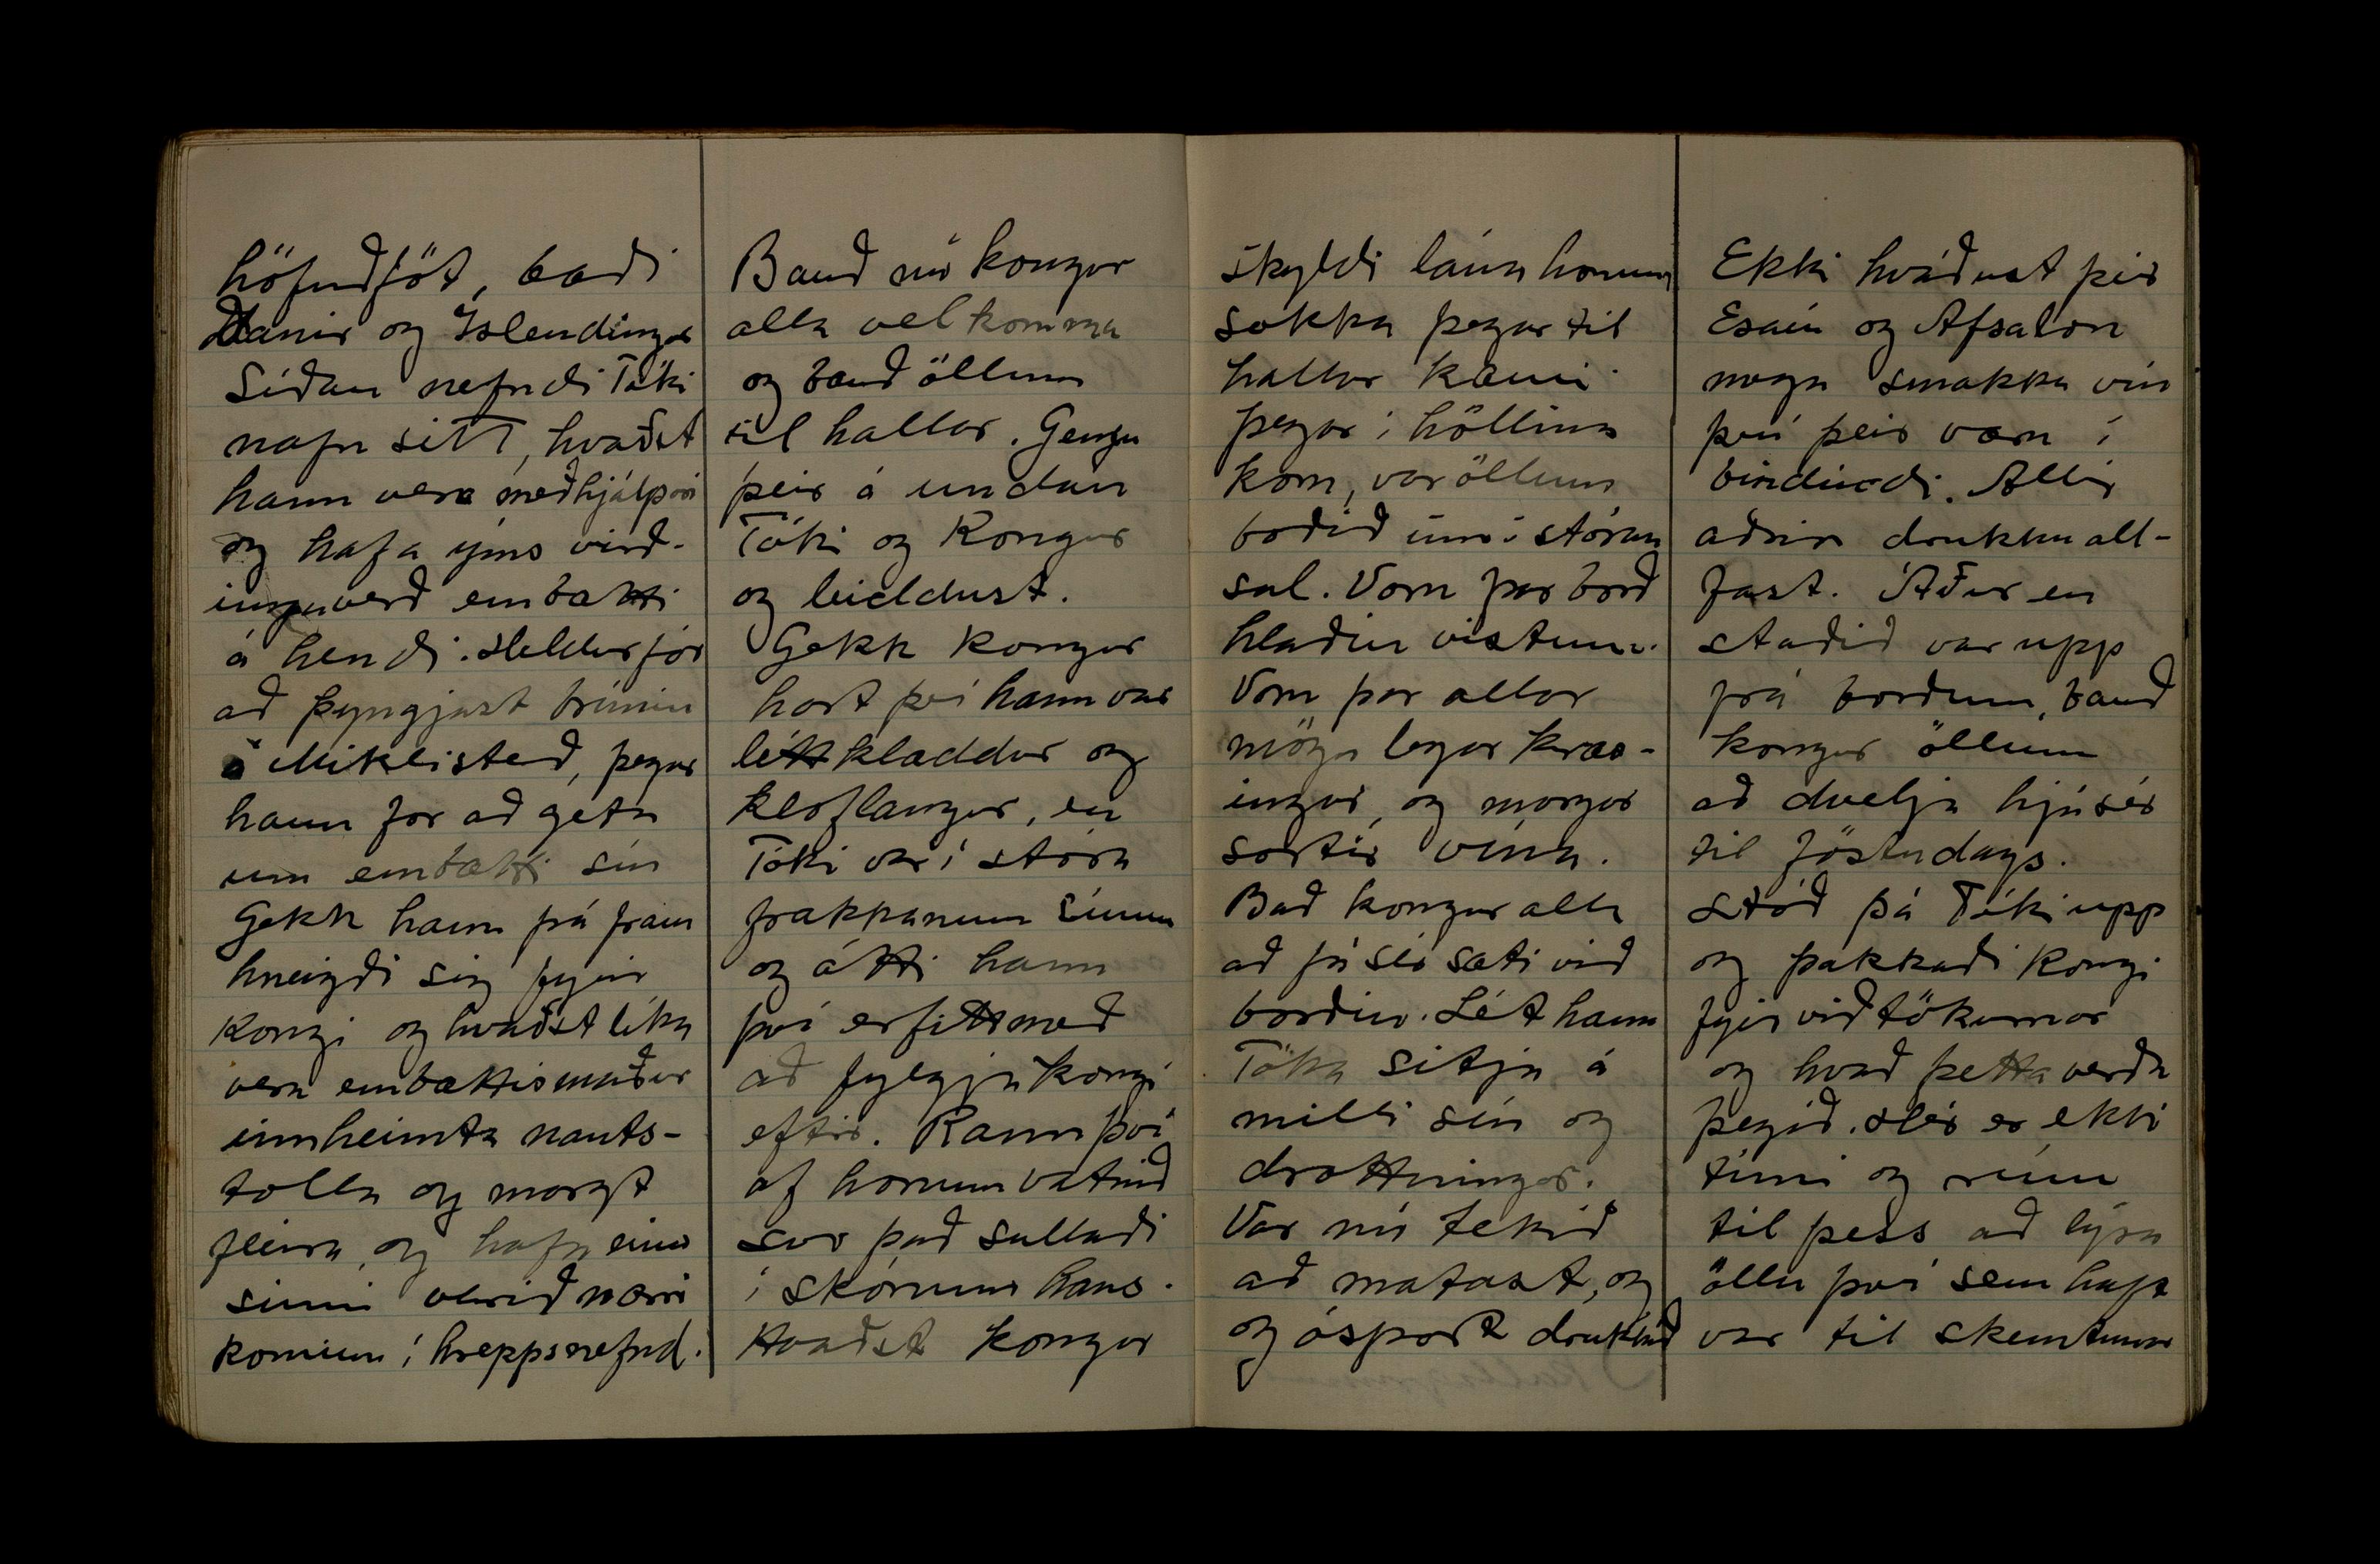 höfuðföt, bæði
Danir og Íslendingar
Síðan nefndi Tóki
nafn sitt, hvaðst
hann vera meðhjálpari
og hafa ýms virð-
inguverð embætti
á hendi. Heldur fór
að þyngjast brúnin
á Miklisteð, þegar
hann fór að geta
um embætti sín
Gekk hann þá fram
hneigði sig fyrir
kongi og hvaðst líka
vera embættismaður
innheimta nauts-
tolla og margt
fleira, og hafa einu
sinni verið nærri
kominn í hreppsnefnd.
Bauð nú kongur
alla velkomna
og bauð öllum
til hallar. Gengu
þeir á undan
Tóki og Kongur
og leiddust.
Gekk kongur
hart því hann var
léttkladdur og
kloflangur, en
Tóki var í stóra
frakkanum sínum
og átti hann
því erfitt með
að fylgja kongi
eftir. Rann því
af honum vatnið
svo það sullaði
í skónum hans.
Hvaðst kongur
skyldi lána honum
sokka þegar til
hallar kæmi.
þegar í höllina
kom, var öllum
boðið inn í stóran
sal. Voru þar borð
hlaðin vistum.
Voru þar allar
mögulegar kræs-
ingar, og margar
sortir vína.
Bað kongur alla
að fá sér sæti við
borðin. Lét hann
Tóka sitja á
milli sín og
drottningar.
Var nú tekið
að matast, og
og óspart drukkið
Ekki kváðust þeir
Esaú og Afsalon
mega smakka vín
því þeir væru í
bindindi. Allir
aðrir drukku all-
fast. Áður en
staðið var upp
frá borðum, bauð
kongur öllum
að dvelja hjá sér
til föstudags.
Stóð þá Tóki upp
og þakkaði kongi
fyrir viðtökurnar
og kvað þetta verða
þegið. Hér er ekki
tími og rúm
til þess að lýsa
öllu því sem haft
var til skemtunar